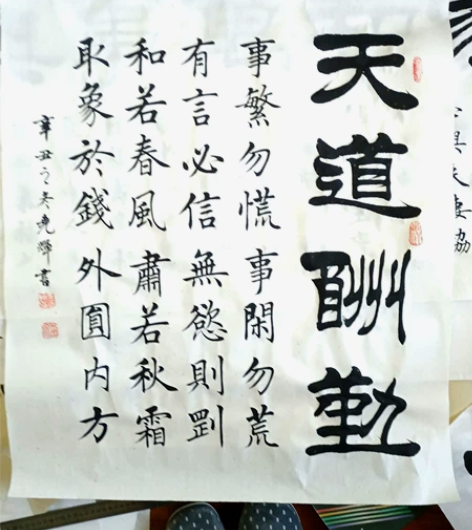 天道酬勤
事繁勿慌 事閑勿荒
有言必信 無慾則剛
和若春風 肅若秋霜
取象於錢 外圓内方
辛丑之冬曉輝書